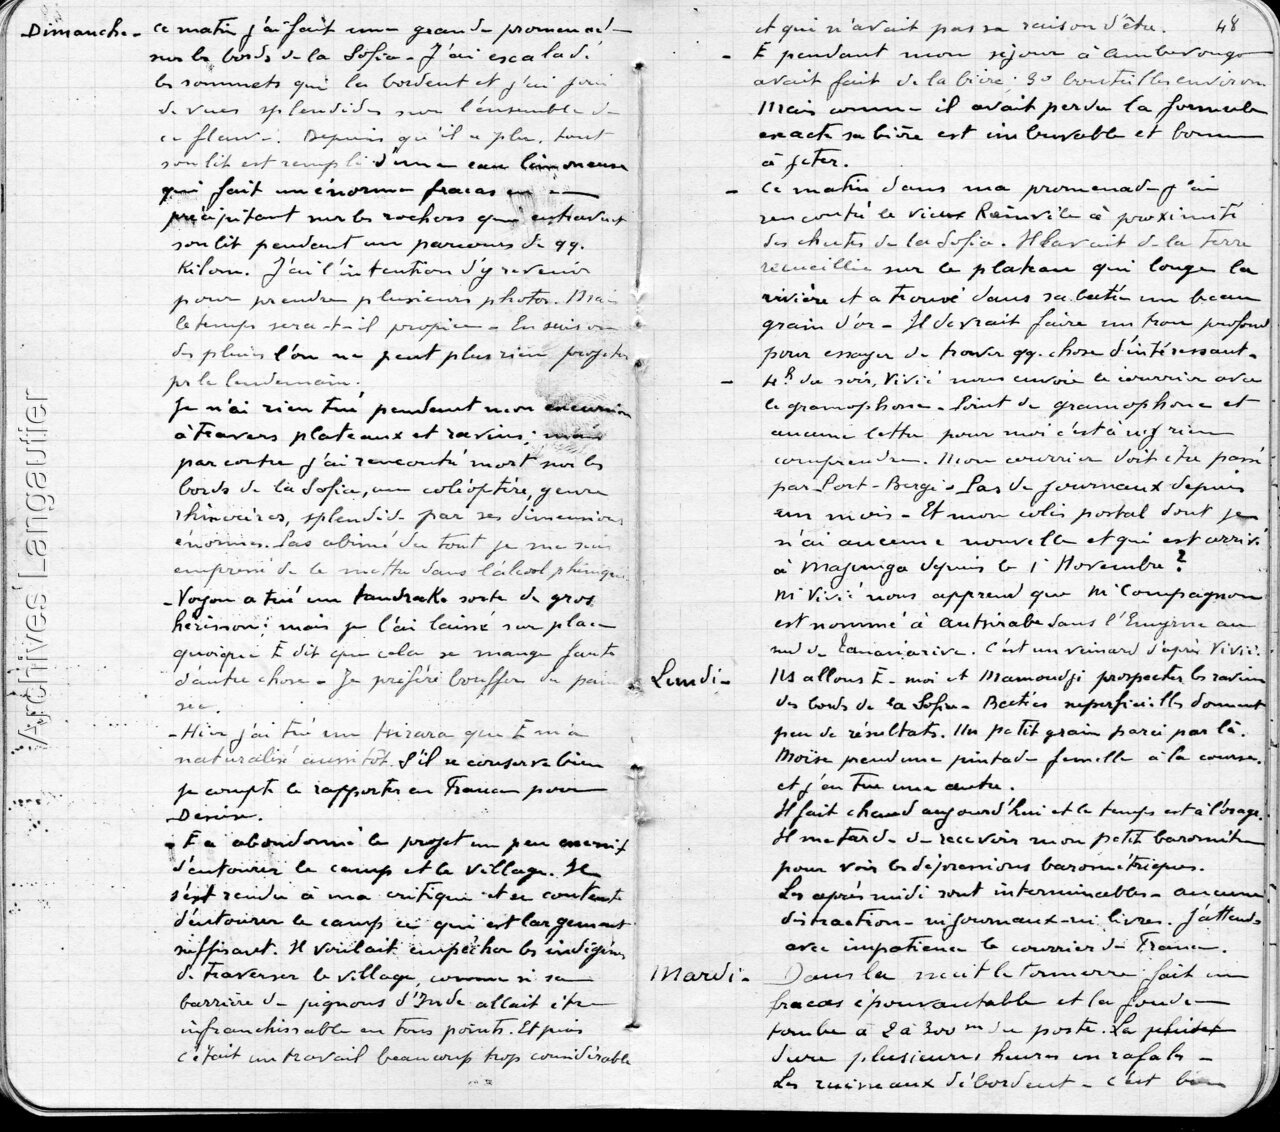 Dimanche - Ce matin j'ai fait une grande promenade
sur les bords de la Sofia - J'ai escaladé
les sommets qui la bordent et j'ai joui
de vues splendides sur l'ensemble de
ce fleuve. Depuis qu'il a plu, tout
son lit est rempli d'une eau limoneuse
qui fait un énorme fracas en se
précipitant sur les rochers qui entravent
son lit pendant un parcours de qq.
Kilom. J'ai l'intention d'y revenir
pour prendre plusieurs photos. Mais
le temps sera-t-il propice - En saison
des pluies l'on ne peut plus rien projeter
pr le lendemain.
Je n'ai rien tué pendant mon excursion
à travers plateaux et ravins; mais
par contre j'ai rencontré mort sur les
bords de la Sofia, un coléoptère, genre
rhinocéros, splendide par ses dimensions
énormes. Pas abimé du tout je me suis
empressé de le mettre dans l'alcool phéniqué.
- Voyou a tué un tandrake sorte de gros
hérisson; mais je l'ai laissé sur place
quoique E dit que cela se mange faute
d'autre chose - Je préfère bouffer du pain
sec.
- Hier j'ai tué un tsirara que E m'a
naturalisé aussitôt. S'il se conserve bien
je compte le rapporter en France pour
Denise.
- E a abandonné le projet un peu
d'entourer le camp et le village. Il
s'est rendu à ma critique et se contente
d'entourer le camp ce qui est largement
suffisant. Il voulait empêcher les indigènes
de traverser le village, comme si sa
barrière de pignons d'Inde allait être
infranchissable en tous points. Et puis
c'était un travail beaucoup trop considérable
48
et qui n'avait pas sa raison d'être.
- E pendant mon séjour à Ambovonga
avait fait de la bière; 30 bouteilles environ
Mais comme il avait perdu la formule
exacte sa bière est imbuvable et bonne
à jeter.
- Ce matin dans ma promenade j'ai
rencontré le vieux Rainville à proximité
des chutes de la Sofia. Il lavait de la terre
recueillie sur le plateau qui longe la
rivière et a trouvé dans sa batée un beau
grain d'or - Il devrait faire un trou profond
pour essayer de trouver qq. chose d'intéressant -
- 4h du soir, Vivié nous envoie le courrier avec
le gramophone - Point de gramophone et
aucune lettre pour moi c'est à n'y rien
comprendre. Mon courrier doit être passé
par Port-Bergé - Pas de journaux depuis
un mois - Et mon colis postal dont je
n'ai aucune nouvelle et qui est arrivé
à Majunga depuis le 1er Novembre?
Mr Vivié nous apprend que Mr Compagnon
est nommé à Antsirabe dans l'Emyrne au
sud de Tananarive. C'est un veinard d'après Vivié.
Lundi - Ns allons E - moi et Mamoudji prospecter les ravins
des bords de la Sofia - Batées superficielles donnent
peu de résultats. Un petit grain par ci par là.
Moïse prend une pintade femelle à la course.
et j'en tue une autre.
Il fait chaud aujourd'hui et le temps est à l'orage.
Il me tarde de recevoir mon petit baromètre
pour voir les dépressions barométriques.
Les après midi sont interminables - aucune
distraction - ni journaux - ni livres. J'attends
avec impatience le courrier de France.
Mardi - Dans la nuit le tonnerre fait un
fracas épouvantable et la foudre
tombe à 2 à 300m du poste. La pluie
dure plusieurs heures en rafales -
Les ruisseaux débordent - c'est bien
Archives Langautier